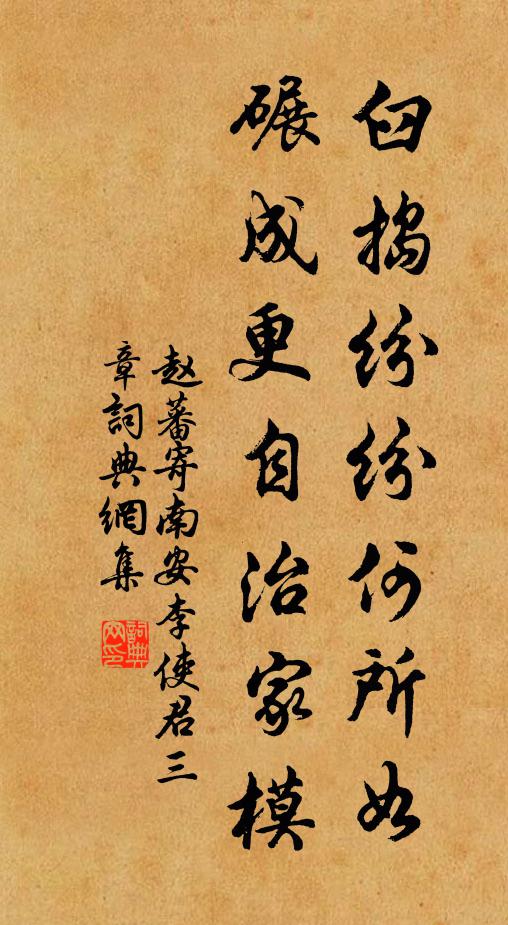 臼捣纷纷何所如
碾成更自治家模
赵蕃寄南安李使君三
章詞典網集
詞典
网印